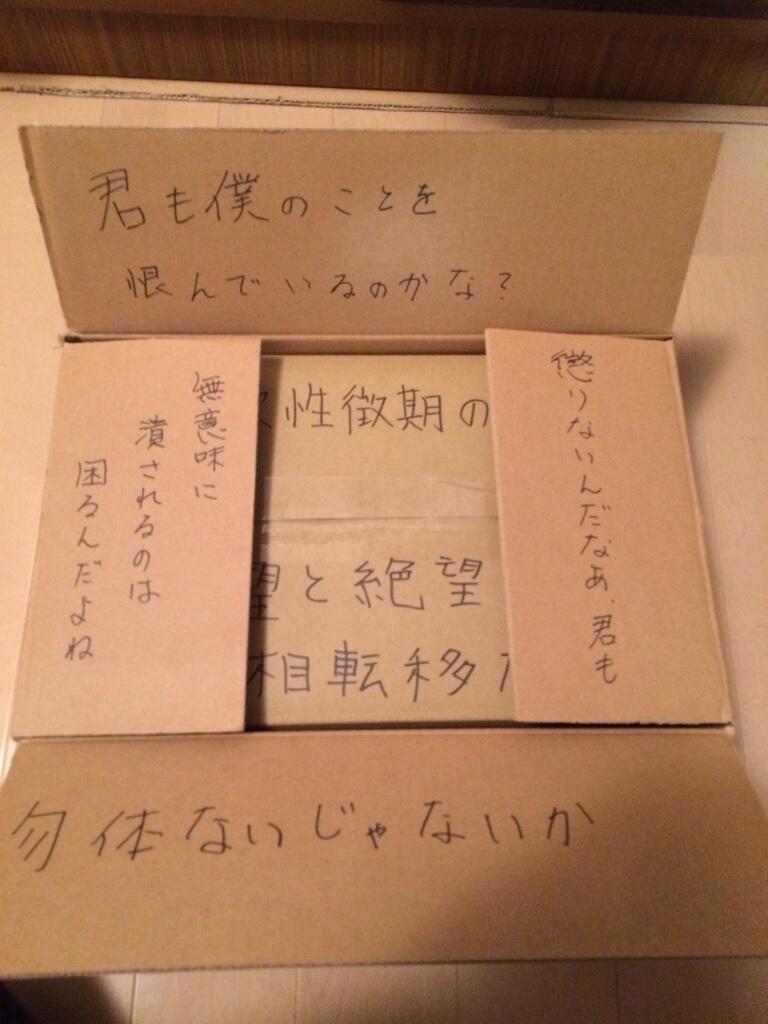 君も僕のことを
恨んでいるのかな？
無意味に
潰されるのは
困るんだよね
性徴期の
望と絶望
相転移
懲りないんだなあ、君も
勿体ないじゃないか